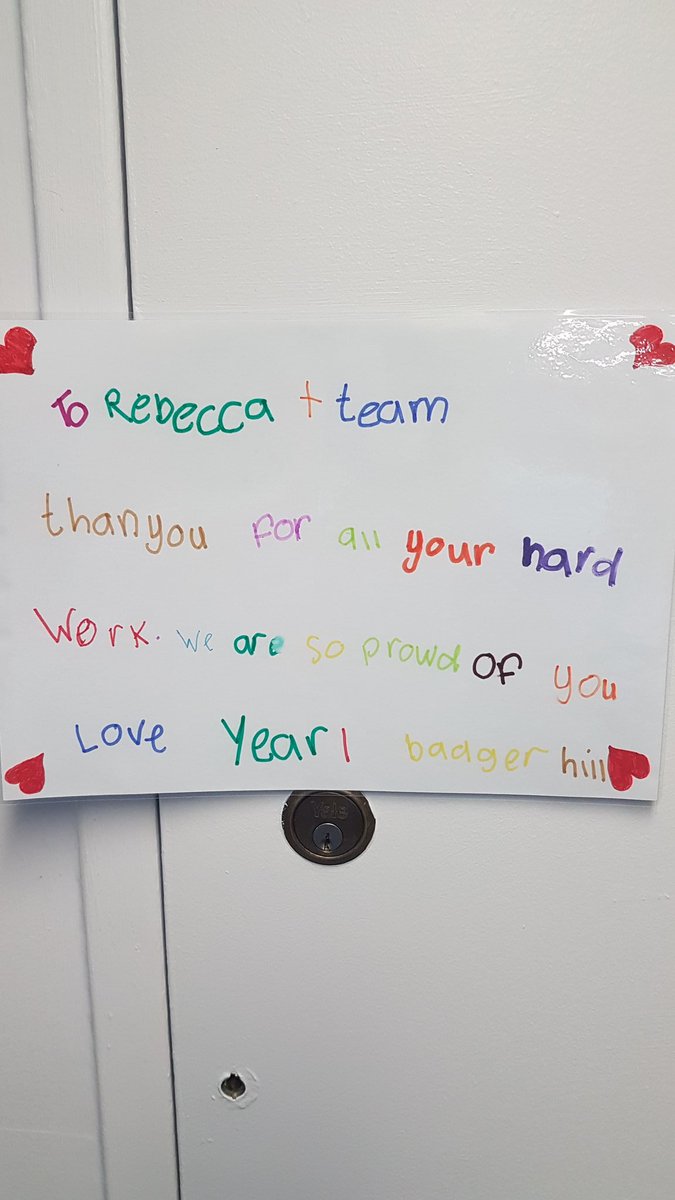 To Rebecca + team
thanyou for all your hard
Work. we are so prowd of you
Love Year 1 badger hill
Yale